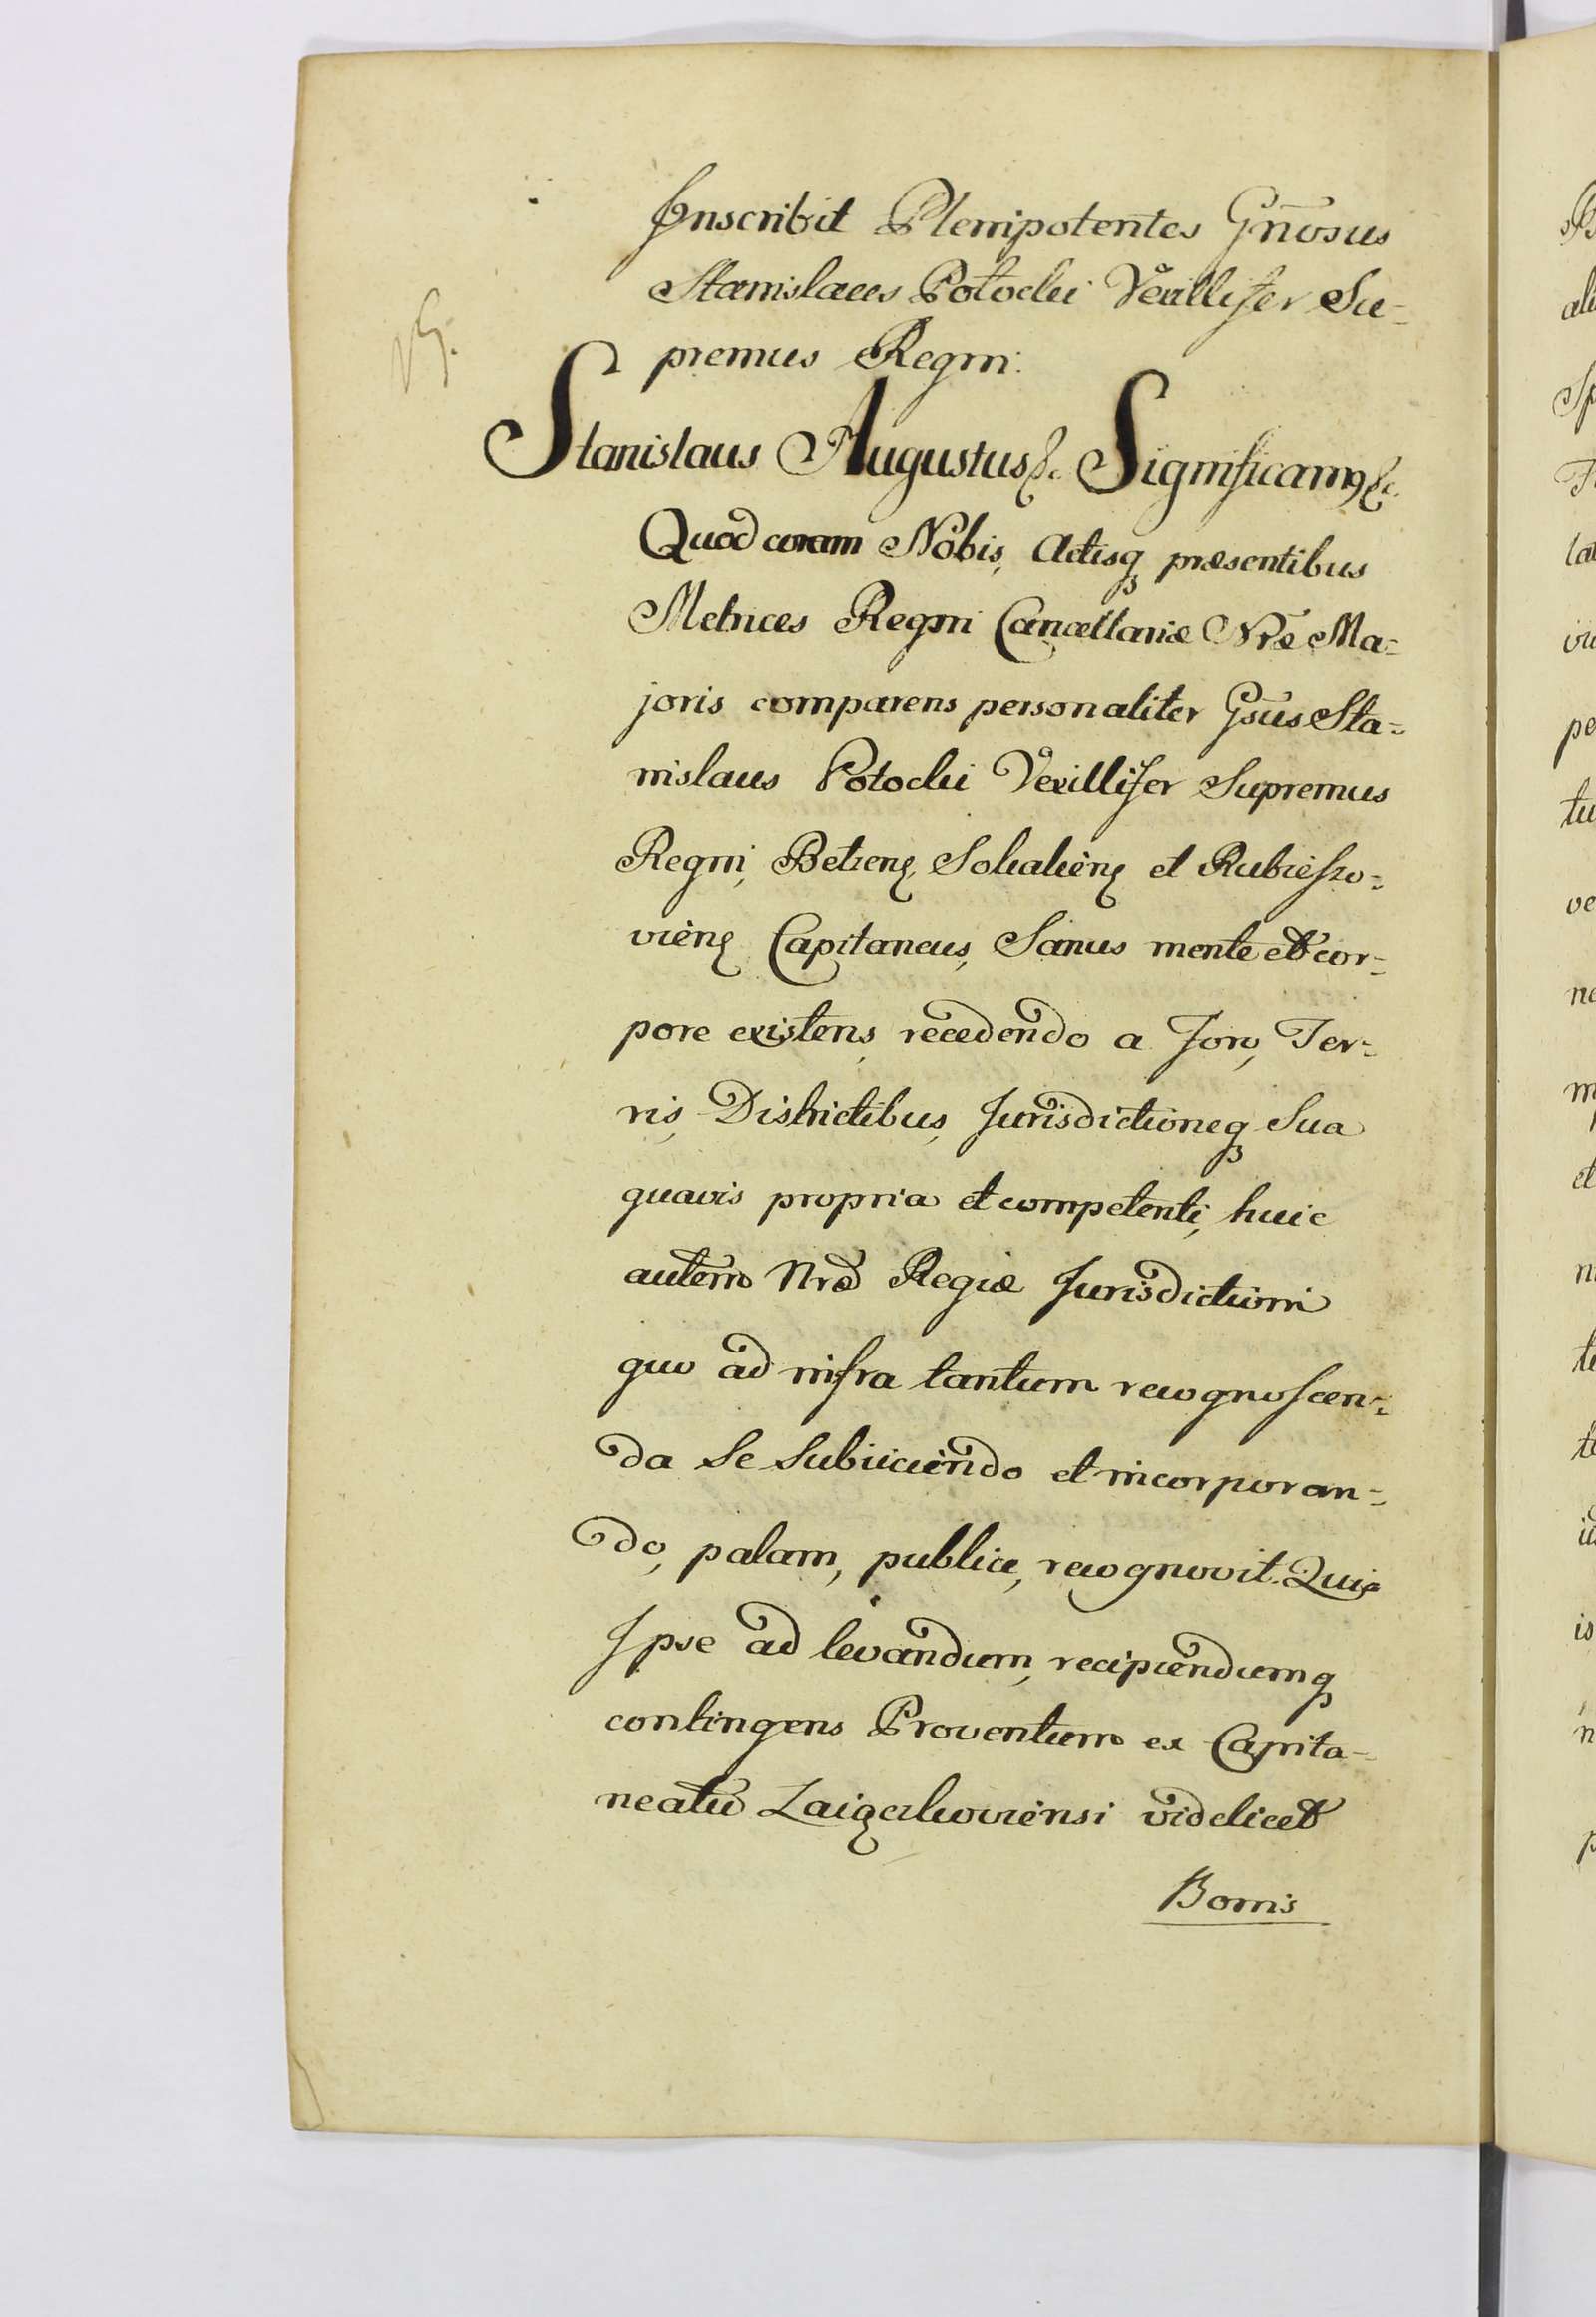 Inscribit Plenipotentes Gnosus
Stanislaus Potocki Vexillifer Su-
premus Regni.
Stanislaus Augustus &c. Significamq &c.
Quod coram Nobis, Actisq præsentibus
Metrices Regni Cancellariæ Nræ Ma-
joris comparens personaliter Gsus Sta-
nislaus Potocki Vexillifer Supremus
Regni, Belzenẽ, Sokaliẽn et Rubieszo-
viẽn Capitaneus, Sanus mente et cor-
pore existens, recedendo a Foro, Ter-
ris, Districtibus, Jurisdictioneq Sua
quavis propria et competenti, huic
autem Nræ Regiæ Jurisdictioni
quo ad infra tantum recognoscen-
da se subiiciendo et incorporan-
do, palam, publice, recognovit. Quia
Ipse ad levandum, recipiendumq
contingens Proventum ex Capita-
neatu videlicet
Bonis